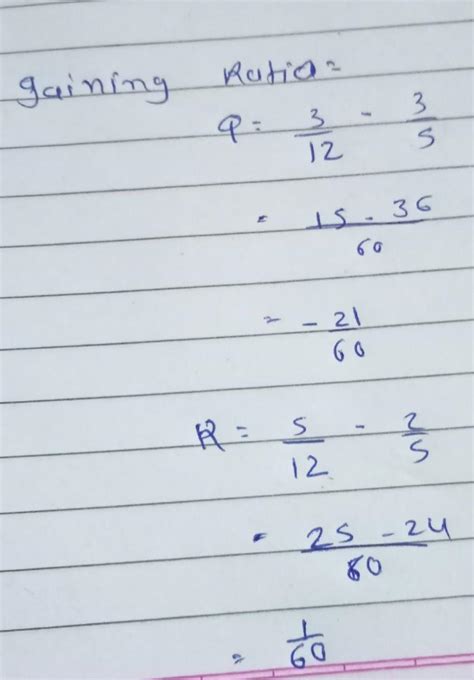 gaining Ratio=
Q = 3/12 - 3/5
= 15 - 36/60
= - 21/60
R = 5/12 - 2/5
= 25 - 24/60
= 1/60